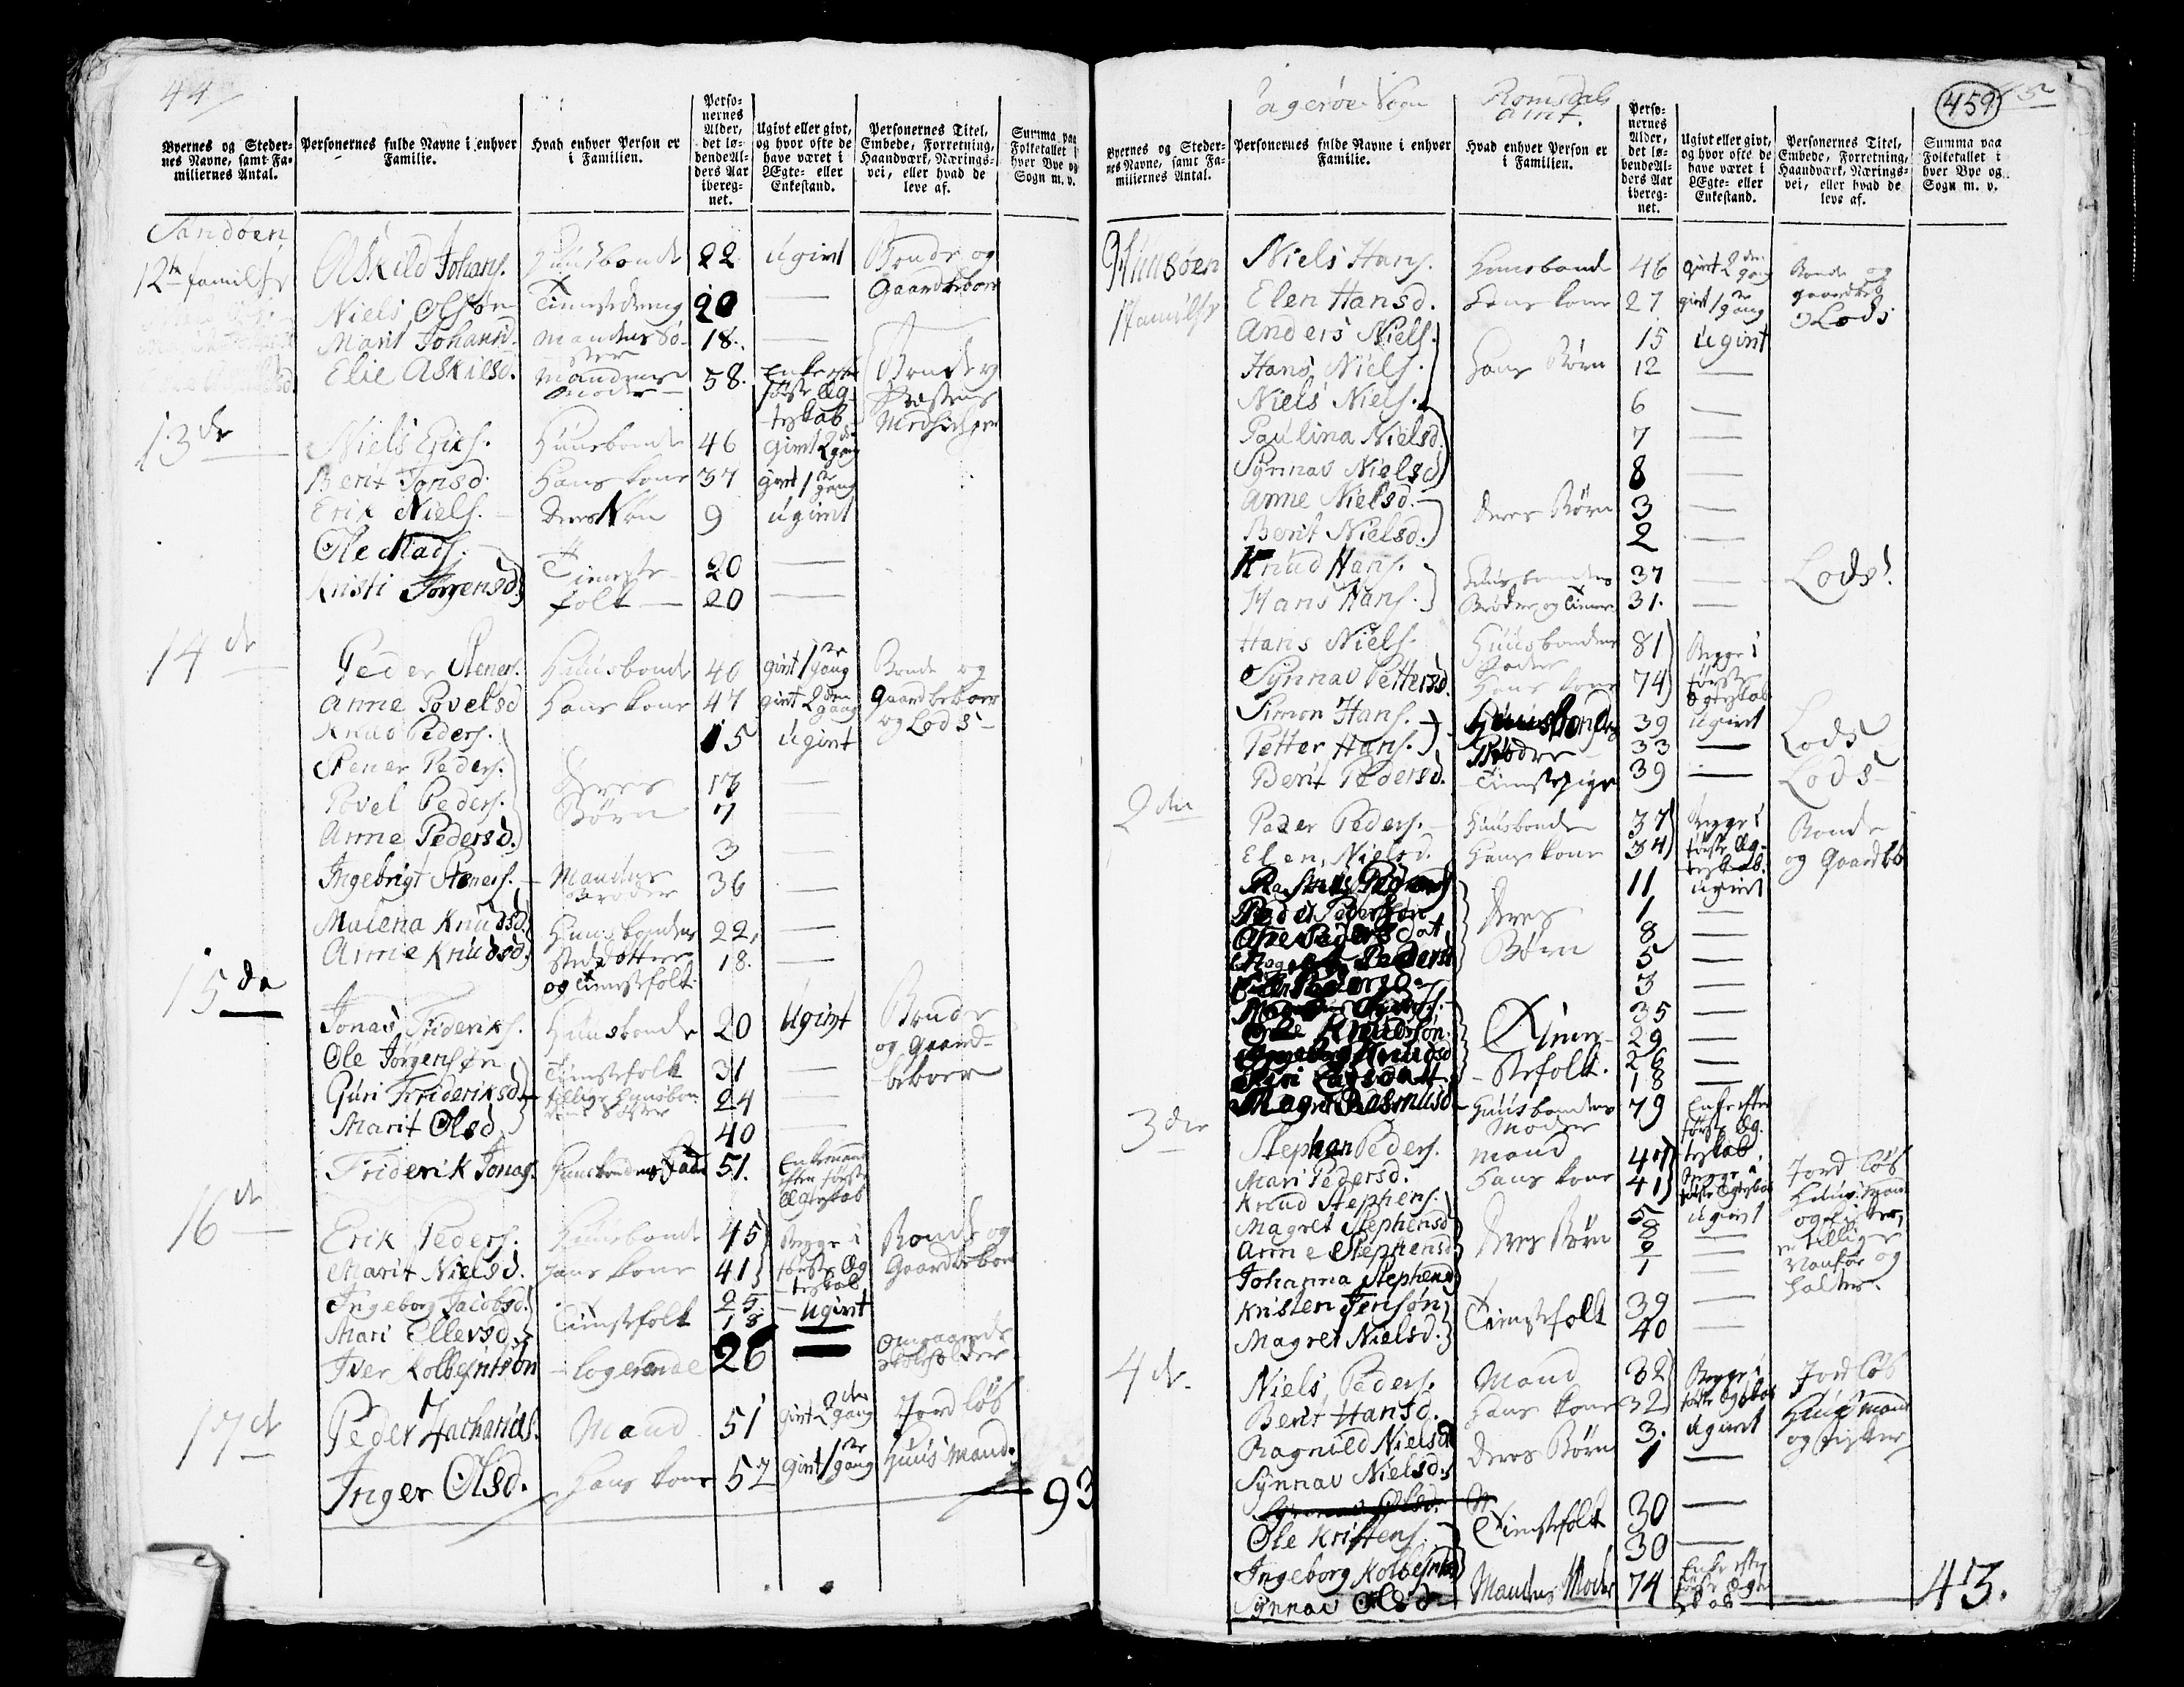 44
Byernes og Steder-
nes Navne, samt Fa-
miliernes Antal.
Personernes fulde Navne i enhver
Familie.
Hvad enhver Person er
i Familien.
Perso-
nernes
Alder,
det lø-
bende Al-
ders Aar
ibereg-
net.
Ugivt eller givt,
og hvor ofte de
have været i
Ægte- eller
Enkestand.
Personernes Titel,
Embede, Forretning,
Haandværk, Nærings-
vei, eller hvad de
leve af.
Summa paa
Folketallet i
hver Bye og
Sogn m. v.
Sandøen
12te familse
Askild Johans. Huusbonde 22 ugivt Bonde og
Gaardbeboer
Niels Olsøn Tienistedreng 20 —
Marit Johansd. Mandens Sø-
ster 18. —
Elie Askilsd. Mandens
Moder 58. Enke efter
første Æg-
teskab
Bonde og
13de
Niels Erics. Huusbonde 46 givt 2den gang
Berit Jonsd. Hans kone 37 givt 1te gang
Erik Niels. Deres Søn 9 ugivt
Ole Mads. Tieniste 20 —
Kristi Jørgensd. folk 20 —
14de
Peder Steners. Huusbonde 40 givt 1te gang Bonde og
Anne Povelsd Hans kone 47 givt 2den gang Gaardbeboer
og Lods
Knud Peders. 15 ugivt
Stener Peders. Deres 13 —
Povel Peders. Børn 7 —
Anne Pedersd. 3 —
Ingebrigt Steners. Mandens
Broder 36 —
Malena Knudsd. Huusbondens 22. —
Anne Knudsd. Steddøttre 18. —
og Tienistefolk
15de
Jonas Frideriks. Huusbonde 20 Ugivt Bonde
og Gaard-
beboer
Ole Jørgensøn Tienistefolk 31 —
Guri Frideriksd. tillige Huusbon-
dens Søster 24 —
Marit Olsd. 40 —
Friderik Jonas. Huusbondens Fader 51. Enkemand
efter første
Ægteskab
16de
Erik Peders. Huusbonde 45 Begge i Bonde og
Marit Nielsd. Hans kone 41 første Æg-
teskab
Gaardbeboer
Ingeborg Jacobsd. Tienistefolk 25 ugivt
Mari Ellevsd. 18 —
Iver Kolbejntsøn logerende 26 — Omgaaende
Skoleholder
17de
Peder Zacharias. Mand 51 givt 2den gang Jordløs
Inger Olsd. Hans kone 52 givt 1te gang Huusmand.
93
Agerøe Sogn
Romsdals
Amt.
459
Byernes og Steder-
nes Navne, samt Fa-
miliernes Antal.
Personernes fulde Navne i enhver
Familie.
Hvad enhver Person er
i Familien.
Perso-
nernes
Alder,
det lø-
bende Al-
ders Aar
ibereg-
net.
Ugivt eller givt,
og hvor ofte de
have været i
Ægte- eller
Enkestand.
Personernes Titel,
Embede, Forretning,
Haandværk, Nærings-
vei, eller hvad de
leve af.
Summa paa
Folketallet i
hver Bye og
Sogn m. v.
Huusøen
1 familse
Niels Hans. Huusbonde 46 givt 2den gang Bonde og
Elen Hansd. Hans kone 27. givt 1te gang gaardbeb
og Lods
Anders Niels. 15 Ugivt
Hans Niels. Hans Børn 12 —
Niels Niels. 6 —
Paulina Nielsd. 7 —
Synnav Nielsd 8 —
Anne Nielsd. Deres Børn 3 —
Berit Nielsd. 2 —
Knud Hans. Huusbondens 37 — Lods.
Hans Hans. Brødre og Tiener 31. —
Hans Niels. Huusbondens
Fader 81 Begge i
Synnav Pettersd. Hans kone 74 første
Ægteskab
Simon Hans. Huusbondens 39 ugivt Lods
Petter Hans. Brødre 33 — Lods
Berit Pedersd. Tienistepige 39 —
2den
Peder Peders. Huusbonde 37 Begge i Bonde
Elen Nielsd. Hans kone 34 første Æg-
teskab.
og Gaardbb
11 ugivt
Peder Pedersøn Deres 1 —
Ane Peders Dat. Børn 8 —
Pedersd 5 —
3 —
35 —
Ole Knudssøn Tieni- 29 —
Ingeborg Knudsd stefolk. 26 —
18 —
Magret Rasmusd Huusbondens
Moder 79 Enke efter
første Æg-
teskab
3die
Stephan Peders. Mand 47 Begge i Jordløs
Mari Pedersd. Hans kone 41 første Ægteskab Huusmand
og Fisker,
er tillige
Vanfør og
halter.
Knud Stephens. 5 ugivt
Magret Stephensd Deres Børn 8 —
Anne Stephensd —
Johanna Stephensd 1 —
Kristen Jensøn Tienistefolk 39 —
Magret Nielsd. 40 —
4de
Niels Peders. Mand 32 Begge i Jordløs
Berit Hansd. Hans kone 32 første Ægteskab Huusmand
og Fisker
Ragnild Nielsd Deres Børn 3. Ugivt
Synnav Nielsd. 1 —
Synnav Olsd.
Ole Kristens. Tienistefolk 30 —
Ingeborg Kolbejntsd 30 —
Synnav Olsd Mandens Moder 74 Enke efter
første Ægte
skab
43.